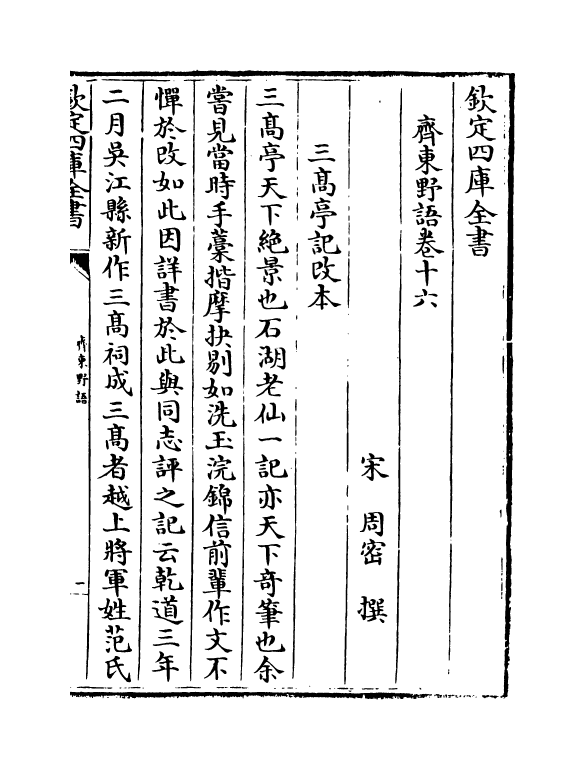 欽定四庫全書
齊東野語卷十六
宋 周密 撰
三髙亭記改本
三髙亭天下絶景也石湖老仙一記亦天下竒筆也余
嘗見當時手藁揩摩抉剔如洗玉浣錦信前輩作文不
憚於改如此因詳書於此與同志評之記云乾道三年
二月吳江縣新作三髙祠成三髙者越上將軍姓范氏
欽定四庫全書
齊東野語
一